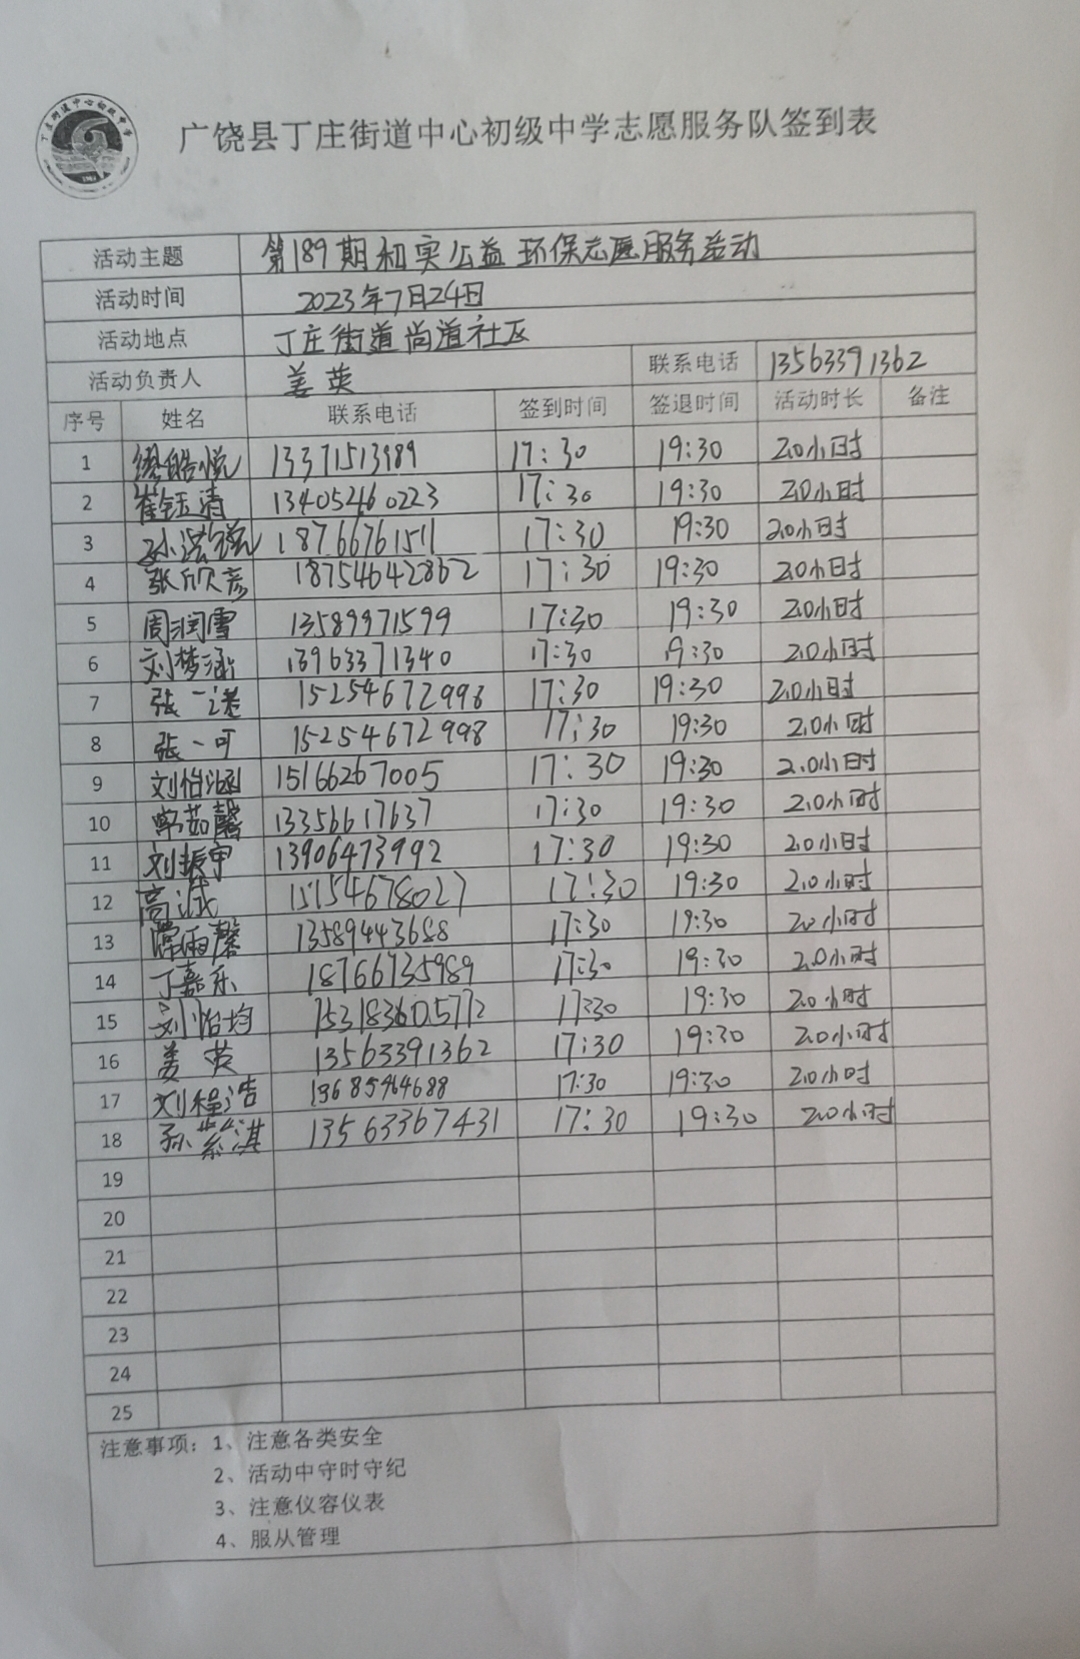 广饶县丁庄街道中心初级中学志愿服务队签到表
活动主题 第189期和实公益 环保志愿服务活动
活动时间 2023年7月24日
活动地点 丁庄街道尚道社区
活动负责人 姜英 联系电话 13563391362
序号 姓名 联系电话 签到时间 签退时间 活动时长 备注
1 皓悦 13371513989 17:30 19:30 2.0小时
2 崔钰清 13405460223 17:30 19:30 2.0小时
3 孙 18766761511 17:30 19:30 2.0小时
4 张欣彦 18754642862 17:30 19:30 2.0小时
5 周润雪 13589971599 17:30 19:30 2.0小时
6 刘梦涵 13963371340 17:30 19:30 2.0小时
7 张一诺 15254672998 17:30 19:30 2.0小时
8 张一可 15254672998 17:30 19:30 2.0小时
9 刘怡涵 15166267005 17:30 19:30 2.0小时
10 韩茹馨 13356617637 17:30 19:30 2.0小时
11 刘振宇 13906473992 17:30 19:30 2.0小时
12 高诚 15154678027 17:30 19:30 2.0小时
13 雨馨 13589443688 17:30 19:30 2.0小时
14 丁嘉乐 18766735989 17:30 19:30 2.0小时
15 刘怡均 153183605772 17:30 19:30 2.0小时
16 姜英 13563391362 17:30 19:30 2.0小时
17 刘程浩 13685464688 17:30 19:30 2.0小时
18 孙紫淇 13563367431 17:30 19:30 2.0小时
19
20
21
22
23
24
25
注意事项：1、注意各类安全
2、活动中守时守纪
3、注意仪容仪表
4、服从管理